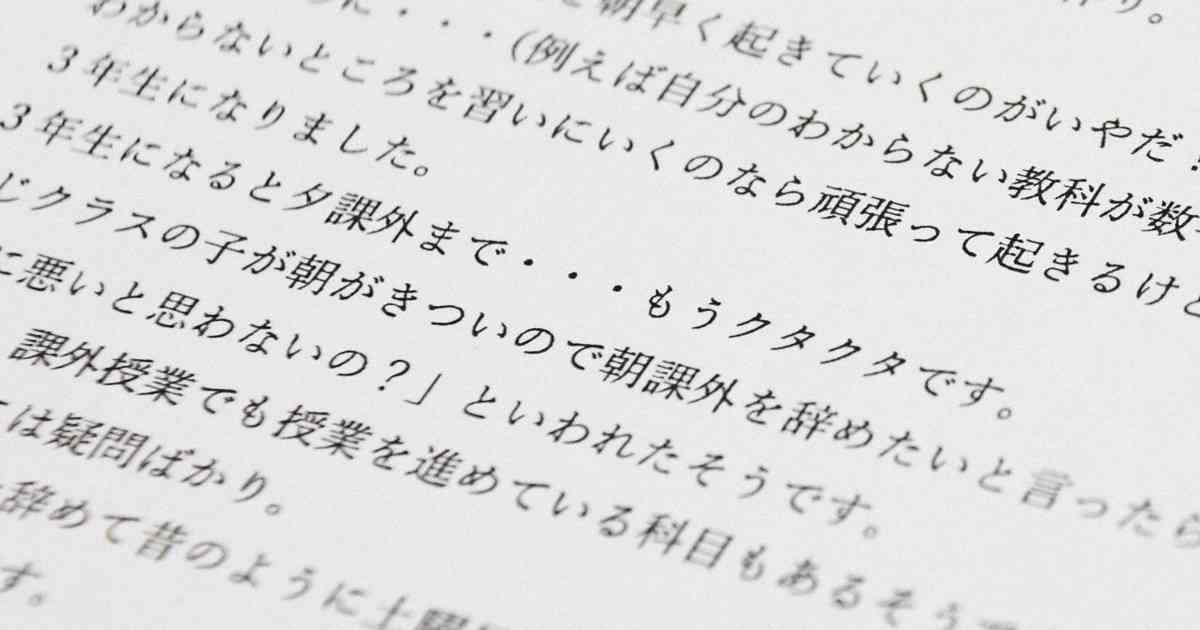 作り。
朝早く起きていくのがいやだ！
に・・・（例えば自分のわからない教科が数
わからないところを習いにいくのなら頑張って起きるけど
3年生になりました。
3年生になると夕課外まで・・・もうクタクタです。
じクラスの子が朝がきついので朝課外を辞めたいと言ったら
に悪いと思わないの？」といわれたそうです。
課外授業でも授業を進めている科目もあるそうで
は疑問ばかり。
辞めて昔のように土曜
す。